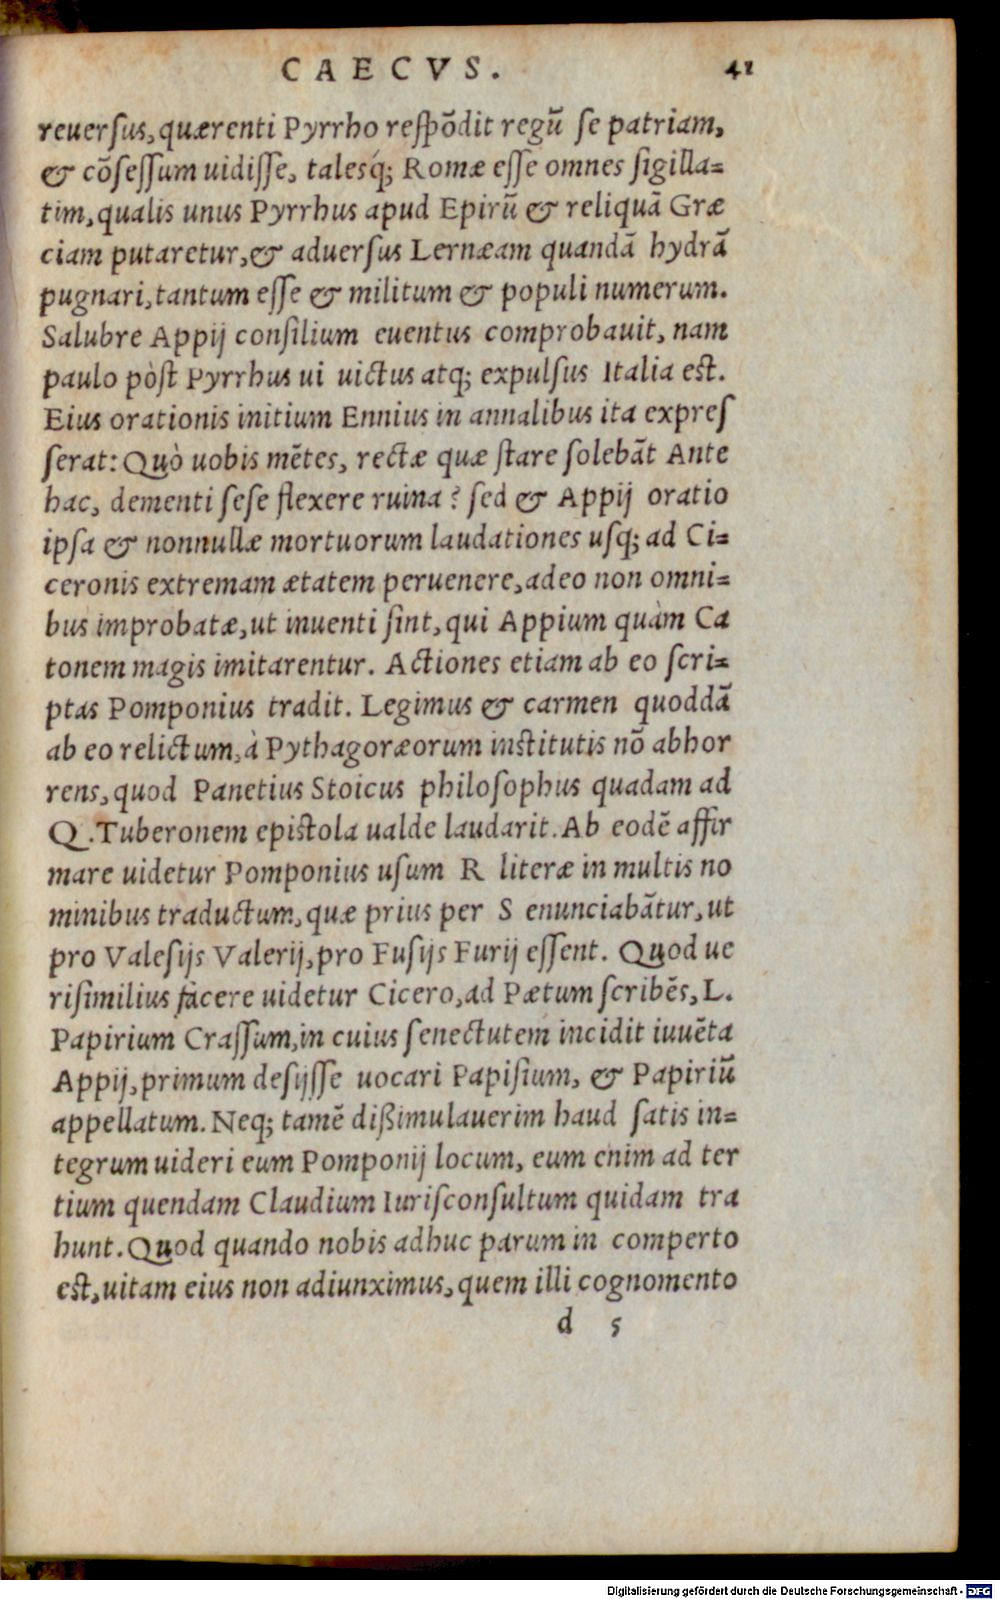 CAECVS. 41
reuersus, quærenti Pyrrho respõdit regũ se patriam,
& cõsessum uidisse, talesq́; Romæ esse omnes sigilla=
tim, qualis unus Pyrrhus apud Epirũ & reliquã Græ
ciam putaretur, & aduersus Lernæam quandã hydrã
pugnari, tantum esse & militum & populi numerum.
Salubre Appij consilium euentus comprobauit, nam
paulo pòst Pyrrhus ui uictus atq; expulsus Italia est.
Eius orationis initium Ennius in annalibus ita expres
serat: Quò uobis mẽtes, rectæ quæ stare solebãt Ante
hac, dementi sese flexere ruina? sed & Appij oratio
ipsa & nonnullæ mortuorum laudationes usq; ad Ci=
ceronis extremam ætatem peruenere, adeo non omni=
bus improbatæ, ut inuenti sint, qui Appium quàm Ca
tonem magis imitarentur. Actiones etiam ab eo scri=
ptas Pomponius tradit. Legimus & carmen quoddã
ab eo relictum, à Pythagoræorum institutis nõ abhor
rens, quod Panetius Stoicus philosophus quadam ad
Q. Tuberonem epistola ualde laudarit. Ab eodẽ affir
mare uidetur Pomponius usum R literæ in multis no
minibus traductum, quæ prius per S enunciabãtur, ut
pro Valesijs Valerij, pro Fusijs Furij essent. Quod ue
risimilius facere uidetur Cicero, ad Pætum scribẽs, L.
Papirium Crassum, in cuius senectutem incidit iuuẽta
Appij, primum desijsse uocari Papisium, & Papiriũ
appellatum. Neq; tamẽ dißimulauerim haud satis in=
tegrum uideri eum Pomponij locum, eum enim ad ter
tium quendam Claudium Iurisconsultum quidam tra
hunt. Quod quando nobis adhuc parum in comperto
est, uitam eius non adiunximus, quem illi cognomento
d 5
Digitalisierung gefördert durch die Deutsche Forschungsgemeinschaft - DFG